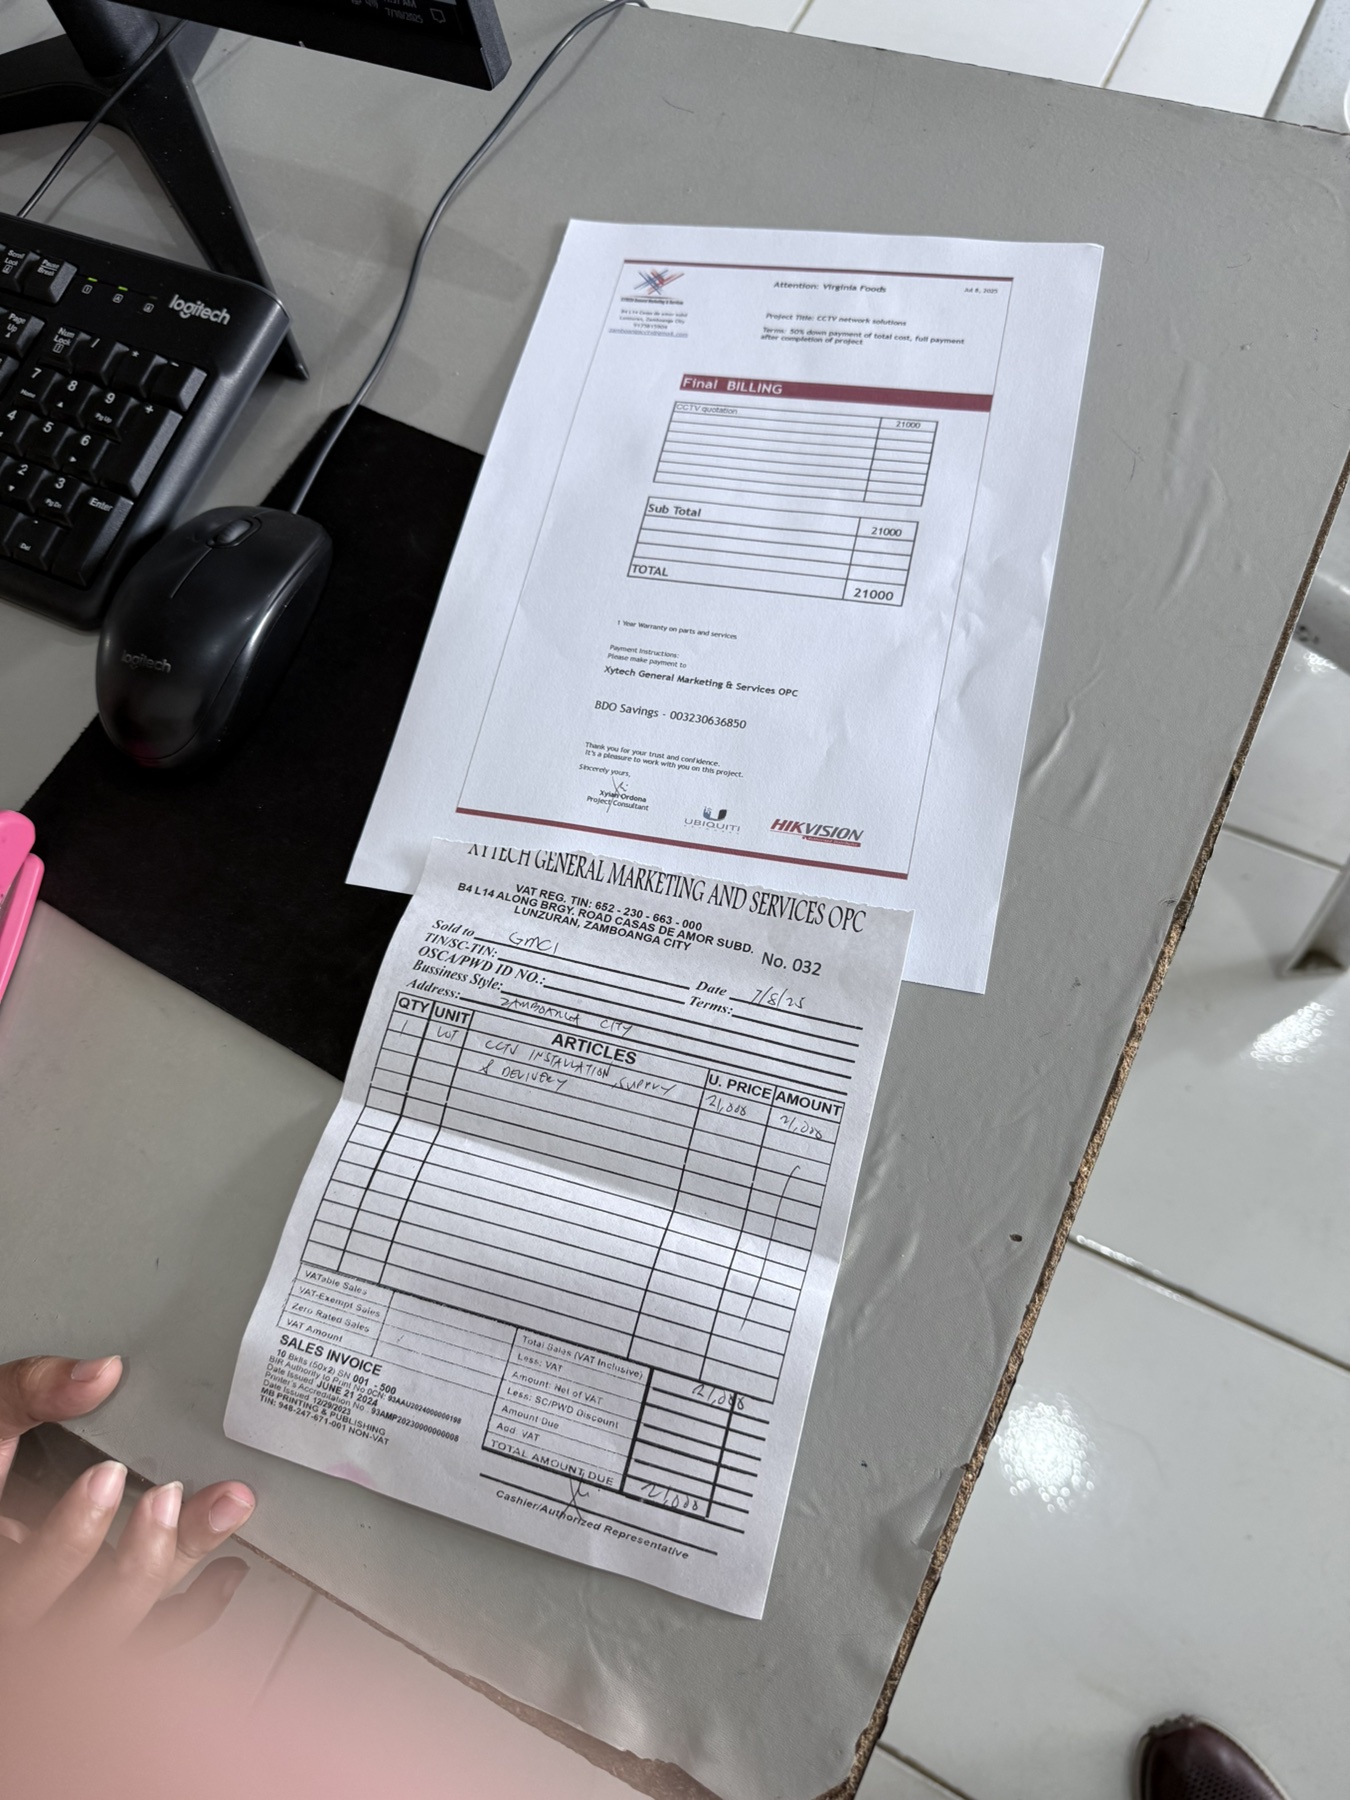 7/10/2025
Scroll Lock
Pause Break
logitech
Page Up
Num Lock
/
*
-
7
Home
8
9
Pg Up
+
4
5
6
2
3
Pg Dn
Enter
Del
logitech
XYTECH General Marketing & Services
B4 L14 Casa de amor subd
Lunzuran, Zamboanga City
Attention: Virginia Foods
Jul 8, 2025
Project Title: CCTV network solutions
Terms: 50% down payment of total cost, full payment
after completion of project
Final BILLING
CCTV quotation 21000
Sub Total 21000
TOTAL 21000
1 Year Warranty on parts and services
Payment Instructions:
Please make payment to
Xytech General Marketing & Services OPC
BDO Savings - 003230636850
Thank you for your trust and confidence.
It's a pleasure to work with you on this project.
Sincerely yours,
Xylan Ordona
Project Consultant
UBIQUITI
HIKVISION
XYTECH GENERAL MARKETING AND SERVICES OPC
VAT REG. TIN: 652 - 230 - 663 - 000
B4 L14 ALONG BRGY. ROAD CASAS DE AMOR SUBD.
LUNZURAN, ZAMBOANGA CITY
No. 032
Sold to GMCI
Date 7/8/25
TIN/SC-TIN:
Terms:
OSCA/PWD ID NO.:
Bussiness Style:
Address: ZAMBOANGA CITY
QTY UNIT ARTICLES U. PRICE AMOUNT
1 LOT CCTV INSTALLATION, SUPPLY 21,000 21,000
& DELIVERY
VATable Sales
VAT-Exempt Sales
Zero Rated Sales
VAT Amount
Total Sales (VAT Inclusive) 21,000
Less: VAT
Amount: Net of VAT
Less: SC/PWD Discount
Amount Due
Add: VAT
TOTAL AMOUNT DUE 21,000
SALES INVOICE
10 Bklts (50x2) SN 001 - 500
BIR Authority to Print No.OCN: 93AAU2024000000198
Date Issued JUNE 21 2024
Printer's Accreditation No. 93AMP20230000000008
Date Issued 12/29/2023
MB PRINTING & PUBLISHING
TIN: 948-247-671-001 NON-VAT
Cashier/Authorized Representative